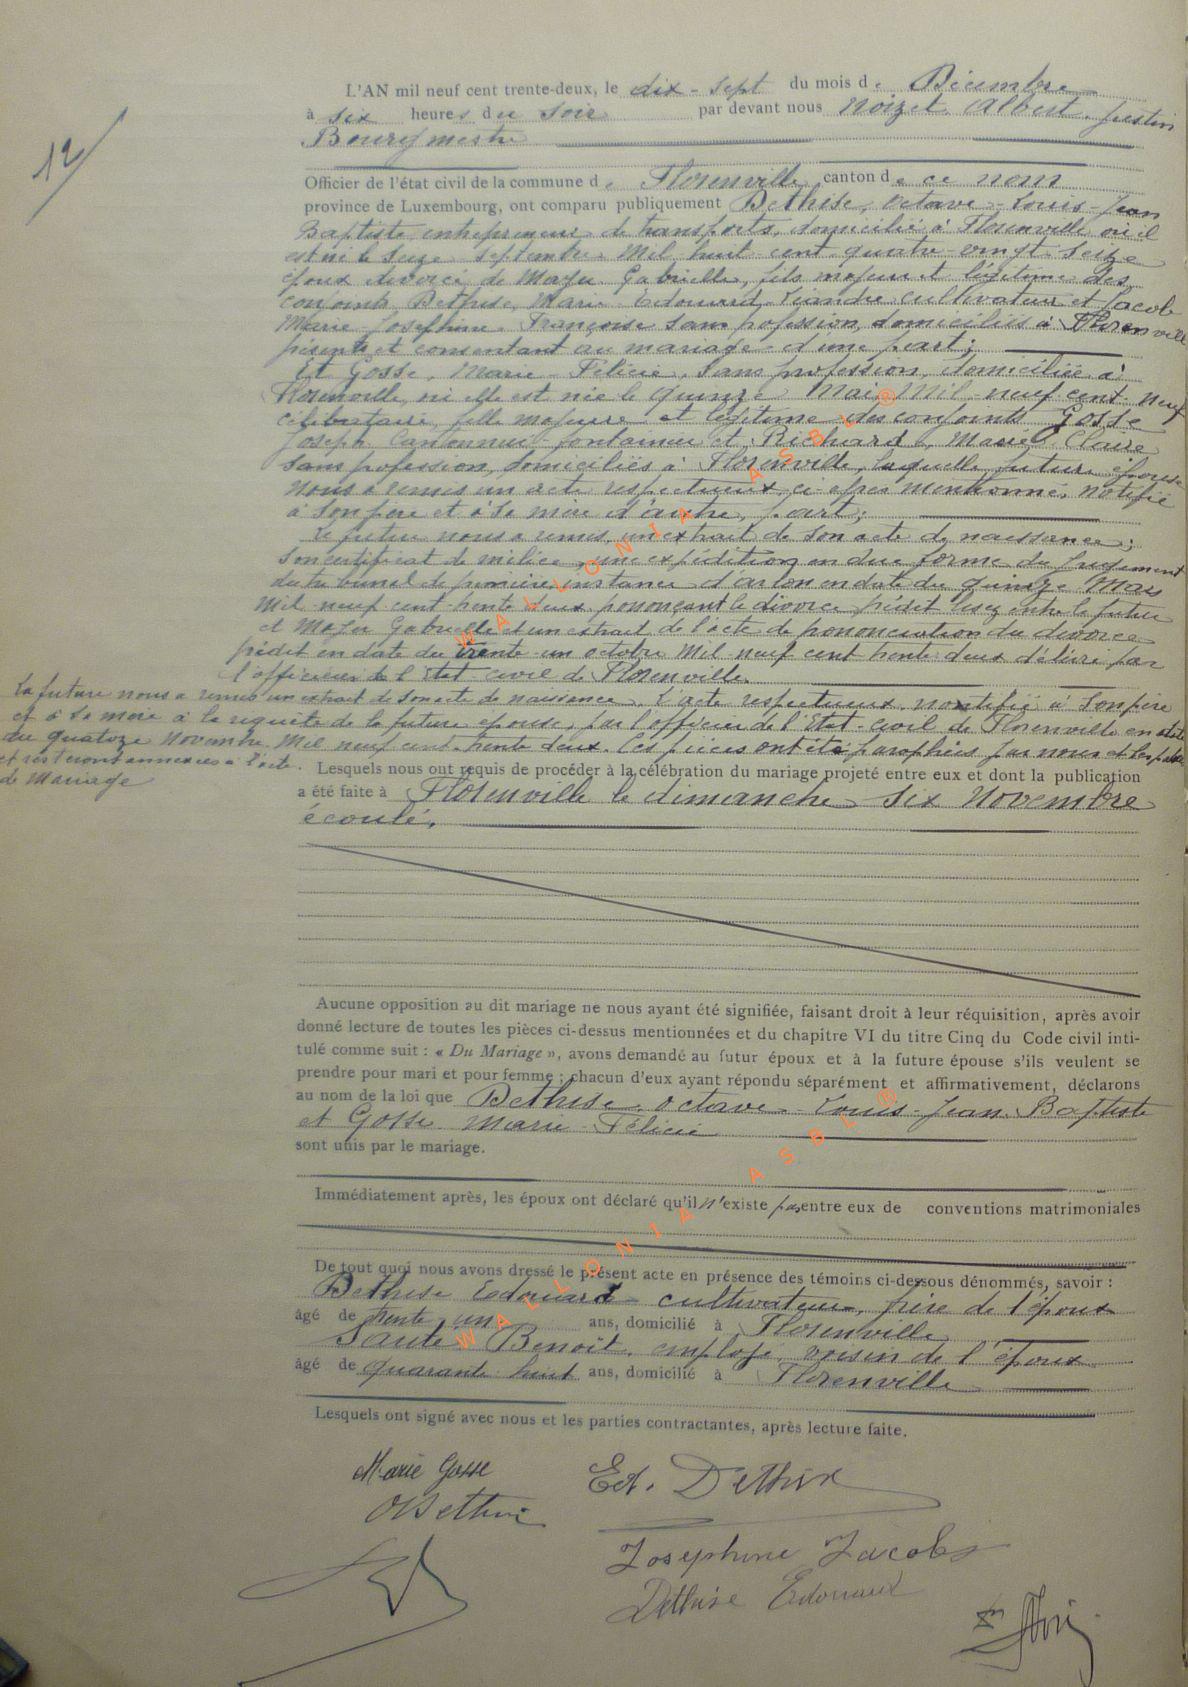 12/
L'AN mil neuf cent trente-deux, le dix-sept du mois de Décembre
à six heures du soir par devant nous Noizet Albert, Justin
Bourgmestre
Officier de l'état civil de la commune de Florenville, canton de ce nom
province de Luxembourg, ont comparu publiquement Dethise, Octave-Louis-Jean
Baptiste, entrepreneur de transports, domicilié à Florenville où il
est né le seize Septembre Mil huit cent quatre-vingt seize
époux divorcé de Gabrielle, fils majeur et légitime des
conjoints Dethise, Marie-Edouard-Léandre cultivateur et Jacob
Marie-Joséphine-Françoise sans profession, domiciliés à Florenville
présents et consentant au mariage d'une part;
Et Gosse, Marie-Félicie, sans profession, domiciliée à
Florenville, où elle est née le quinze Mai Mil neuf cent neuf
célibataire, fille majeure et légitime des conjoints Gosse
Joseph Cantonnier fontainier et Richard, Marie-Claire
sans profession, domiciliés à Florenville, laquelle future épouse
nous a remis un acte respectueux ci-après mentionné, notifié
à son père et à sa mère d'autre part;
Le futur nous a remis, un extrait de son acte de naissance;
son certificat de milice, une expédition en due forme du jugement
du tribunal de première instance d'Arlon en date du quinze Mars
Mil neuf cent trente deux prononçant le divorce prédit entre le futur
et Gabrielle et un extrait de l'acte de prononciation du divorce
prédit en date du trente-un octobre Mil neuf cent trente-deux délivré par
l'officier de l'Etat-civil de Florenville.
La future nous a remis un extrait de son acte de naissance. L'acte respectueux notifié à son père
et à sa mère à la requête de la future épouse, par l'officier de l'Etat-civil de Florenville en date
du quatorze Novembre Mil neuf cent trente deux. Ces pièces ont été paraphées par nous et les parties
et resteront annexées à l'acte
de Mariage
Lesquels nous ont requis de procéder à la célébration du mariage projeté entre eux et dont la publication
a été faite à Florenville le dimanche six Novembre
écoulé.
Aucune opposition au dit mariage ne nous ayant été signifiée, faisant droit à leur réquisition, après avoir
donné lecture de toutes les pièces ci-dessus mentionnées et du chapitre VI du titre Cinq du Code civil inti-
tulé comme suit : « Du Mariage », avons demandé au futur époux et à la future épouse s'ils veulent se
prendre pour mari et pour femme ; chacun d'eux ayant répondu séparément et affirmativement, déclarons
au nom de la loi que Dethise, Octave-Louis-Jean-Baptiste
et Gosse Marie-Félicie
sont unis par le mariage.
Immédiatement après, les époux ont déclaré qu'il n'existe pas entre eux de conventions matrimoniales
De tout quoi nous avons dressé le présent acte en présence des témoins ci-dessous dénommés, savoir :
Dethise Edouard cultivateur, frère de l'époux
âgé de trente un ans, domicilié à Florenville
Benoît, employé, voisin de l'époux
âgé de quarante huit ans, domicilié à Florenville
Lesquels ont signé avec nous et les parties contractantes, après lecture faite.
Marie Gosse
Ed. Dethise
O Dethise
Joséphine Jacob
Dethise Edouard
WALLONIA ASBL ®
WALLONIA ASBL ®